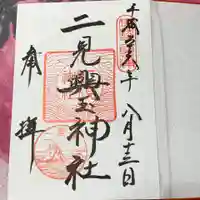 平成二十八年
八月十三日
二見興玉神社
奉拝